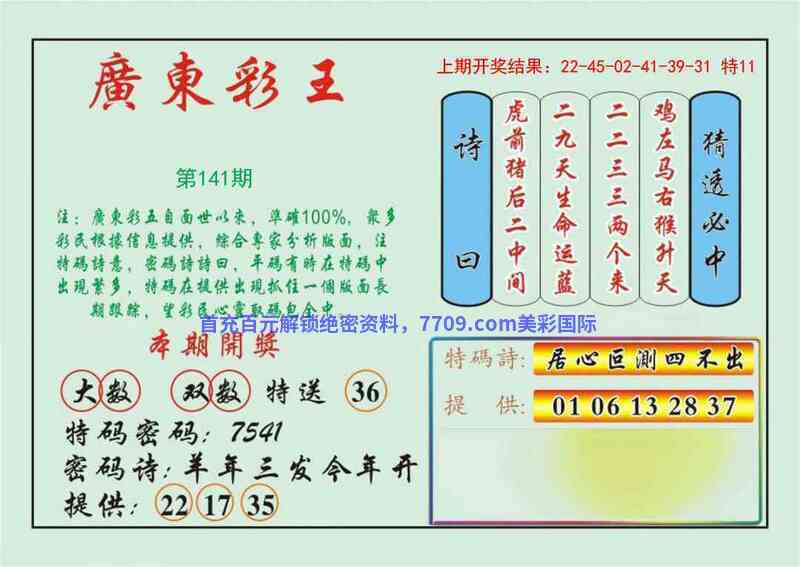 廣東彩王
上期开奖结果：22-45-02-41-39-31 特11
第141期
注：廣東彩五自面世以来，準確100%，聚多
彩民根據信息提供，綜合專家分析版面，注
特碼詩意，密碼詩詩曰，平碼有時在特碼中
出現繁多，特碼在提供出現抓住一個版面長
期跟踪，望彩民心靈取碼包全中。
首充百元解锁绝密资料，7709.com美彩国际
诗曰
虎前猪后二中间
二九天生命运蓝
二二三三两个来
鸡左马右猴升天
猜透必中
本期開獎
大数 双数 特送 36
特码密码：7541
密码诗：羊年三发今年开
提供：22 17 35
特碼詩：居心叵測四不出
提 供：01 06 13 28 37